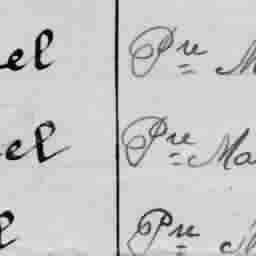 el Pre M
el Pre Ma
l Pre M